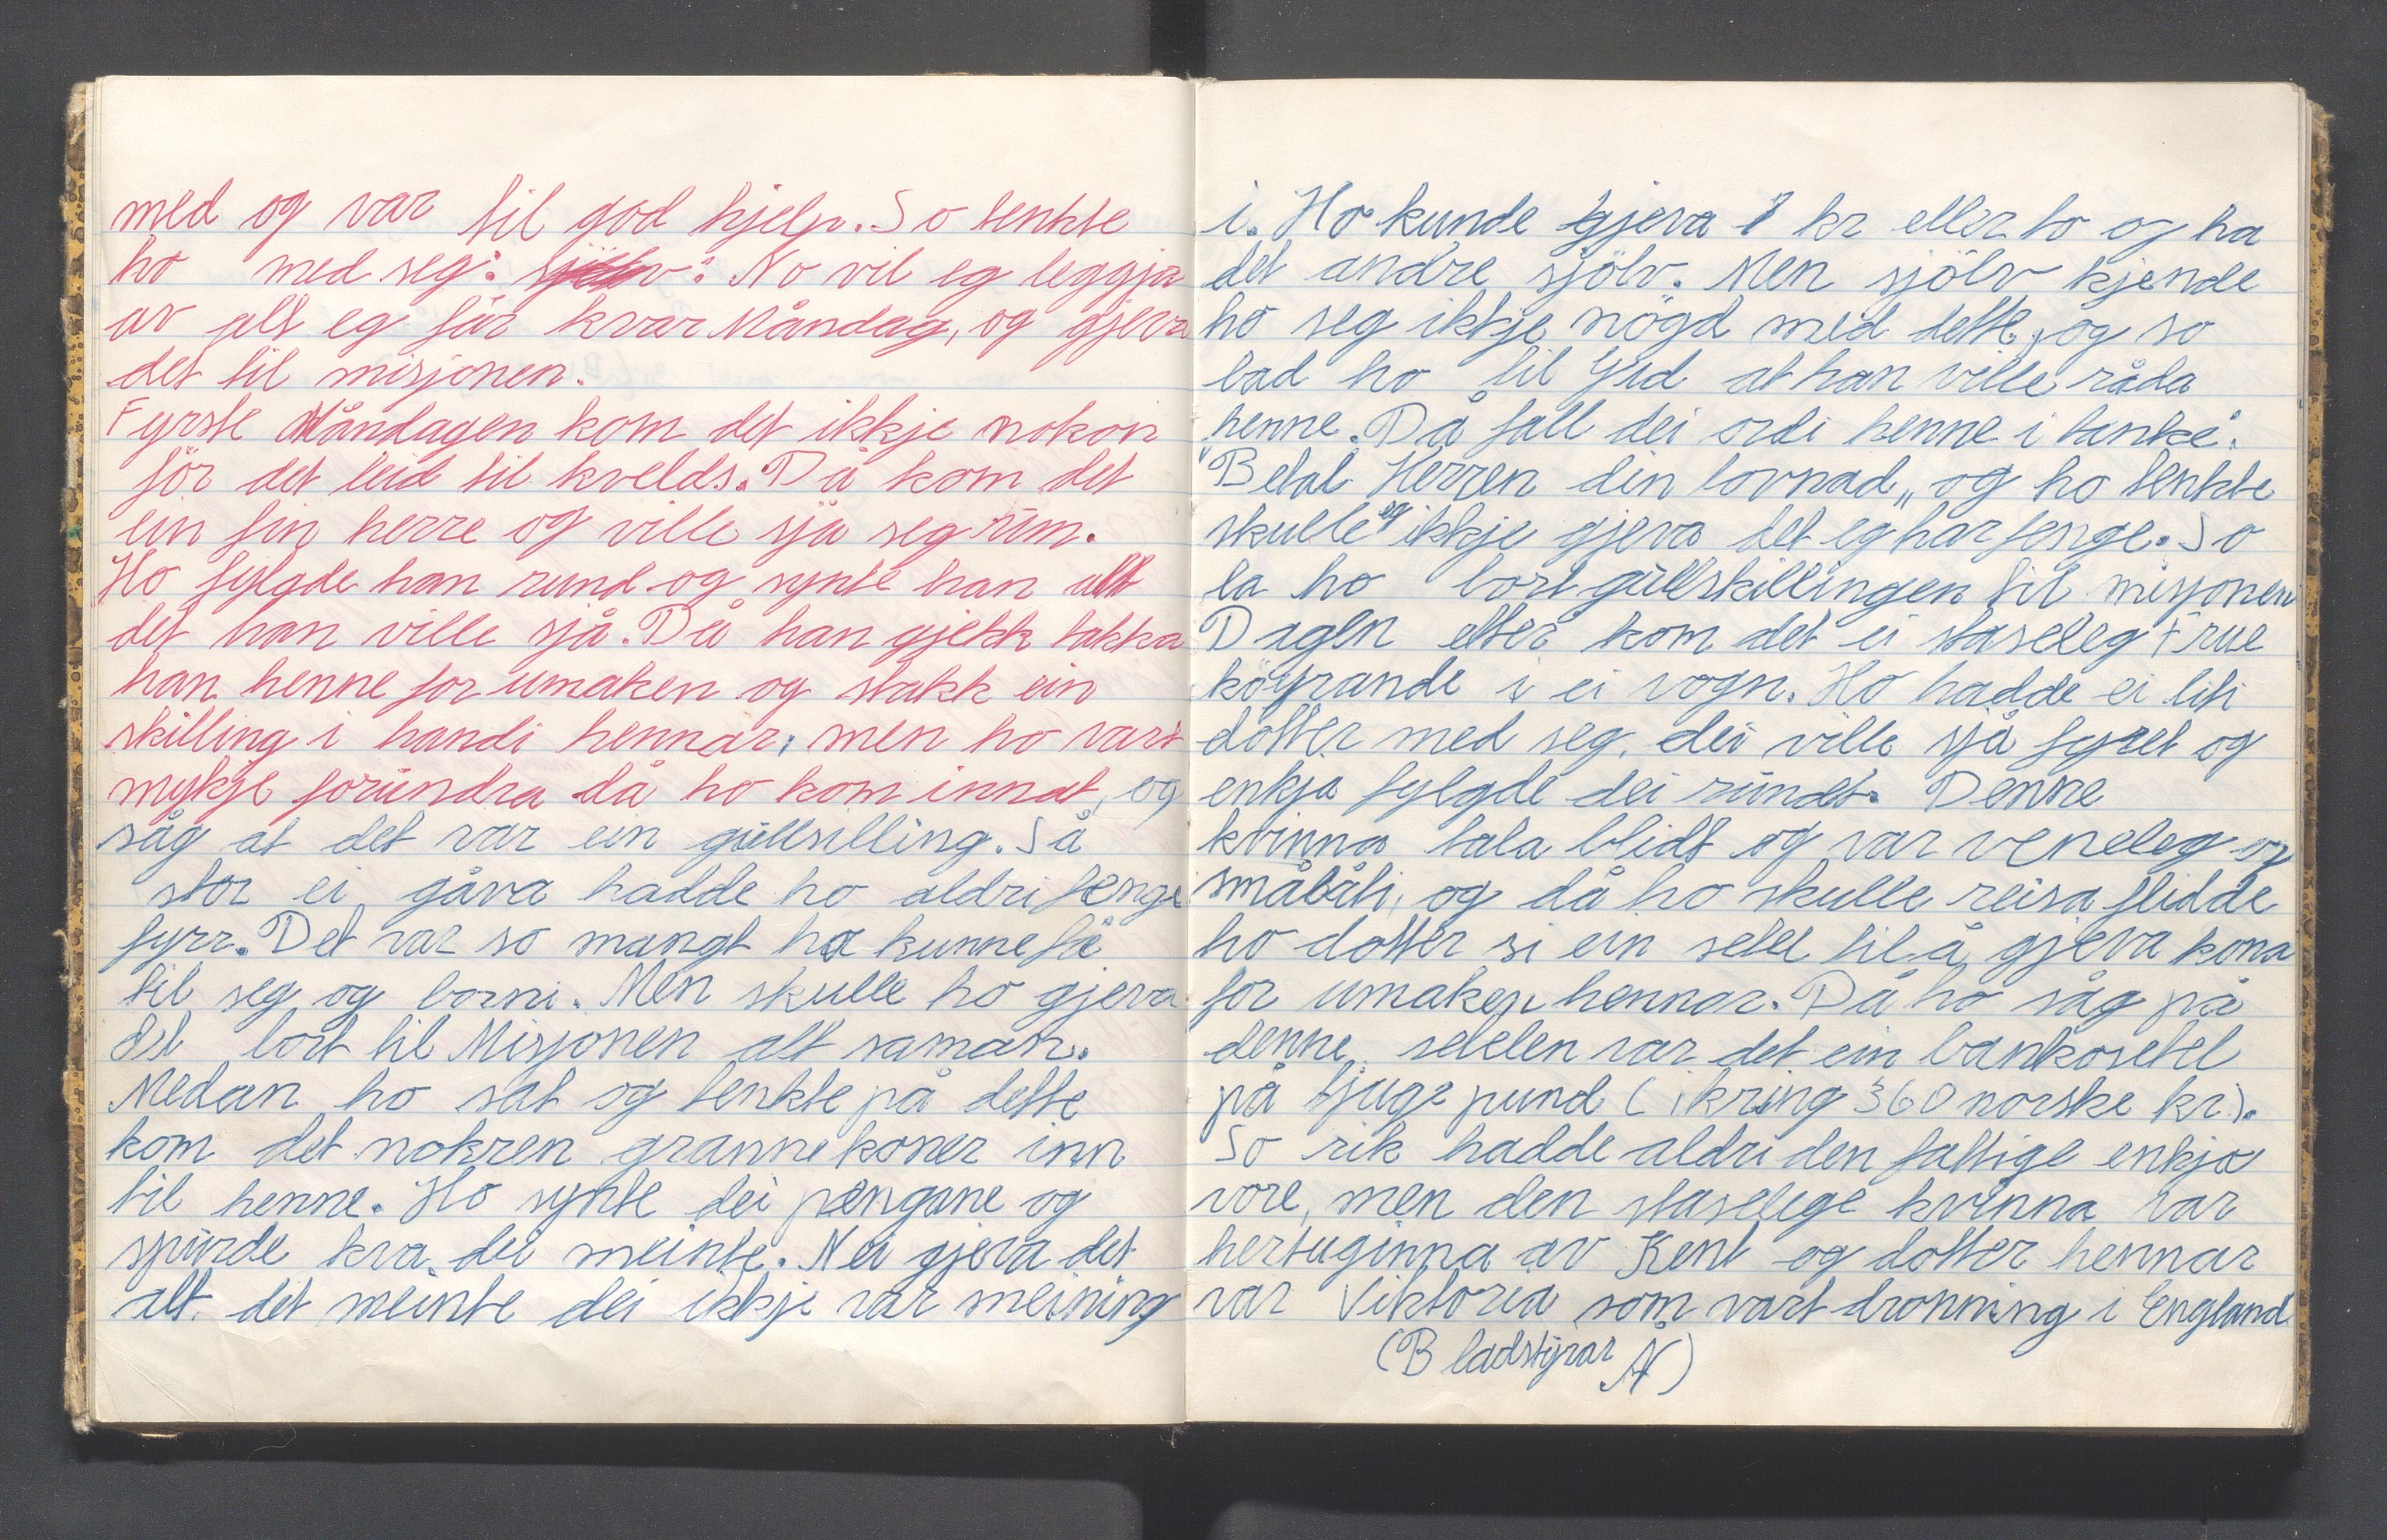 med og var til god hjelp. So tenkte
ho med seg: sjølv: No vil eg leggja
av alt eg får kvar Måndag, og gjeva
det til misjonen.
Fyrste Måndagen kom det ikkje nokon
för det leid til kvelds. Då kom det
ein fin herre og ville sjå seg um.
Ho fylgde han rund og synte han alt
det han ville sjå. Då han gjekk takka
han henne for umaken og stakk ein
skilling i handi hennar, men ho vart
mykje forundra då ho kom innat, og
såg at det var ein gullsilling. Så
stor ei gåva hadde ho aldri fenge
fyrr. Det var so mangt ho kunne få
til seg og borni. Men skulle ho gjeva
det bort til Misjonen alt saman.
Medan ho sat og tenkte på dette
kom det nokren grannekoner inn
til henne. Ho synte dei pengane og
spurde kva dei meinte. Nei gjeva det
alt. det meinte dei ikkje var meining
i. Ho kunde gjeva 1 kr eller to og ha
det andre sjölv. Men sjölv kjende
ho seg ikkje nögd med dette, og so
bad ho til Gud at han ville råda
henne. Då fall dei ordi henne i tanke.
"Betal Herren din lovnad" og ho tenkte
skulle eg ikkje gjeva det eg har fenge. So
la ho bort gullskillingen til misjonen
Dagen etter kom det ei staseleg Frue
köyrande i ei vogn. Ho hadde ei liti
dotter med seg, dei ville sjå fyret og
enkja fylgde dei rundt. Denne
kvinna tala blidt og var veneleg og
småláti, og då ho skulle reisa flidde
ho dotter si ein setel til å gjeva kona
for umaken hennar. Då ho såg på
denne setelen var det ein bankosetel
på tjuge pund (ikring 360 norske kr).
So rik hadde aldri den fattige enkja
vore, men den staselege kvinna var
hertuginna av Kent og dotter hennar
var Viktoria som vart dronning i England.
(Bladstyrar N)